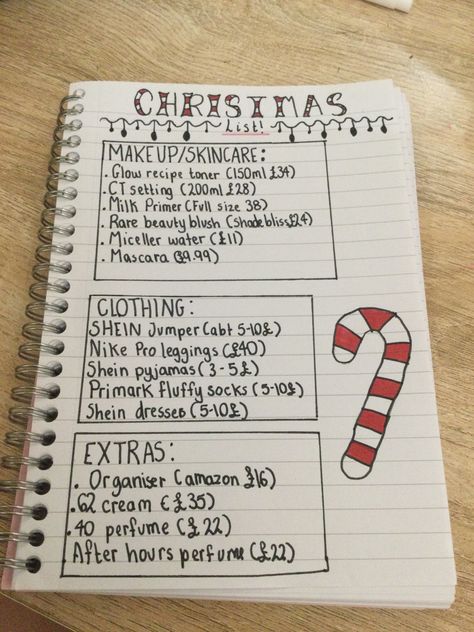 CHRISTMAS
List!
MAKEUP/SKINCARE:
. Glow recipe toner (150ml £34)
. CT setting (200ml £28)
. Milk Primer (Full size 38)
. Rare beauty blush (Shade bliss £24)
. Miceller water (£11)
. Mascara (£9.99)
CLOTHING:
SHEIN Jumper (abt 5-10£)
Nike Pro leggings (£40)
Shein pyjamas (3-5£)
Primark fluffy socks (5-10£)
Shein dresses (5-10£)
EXTRAS:
. Organiser (amazon £16)
.62 cream (£35)
.40 perfume (£22)
.After hours perfume (£22)